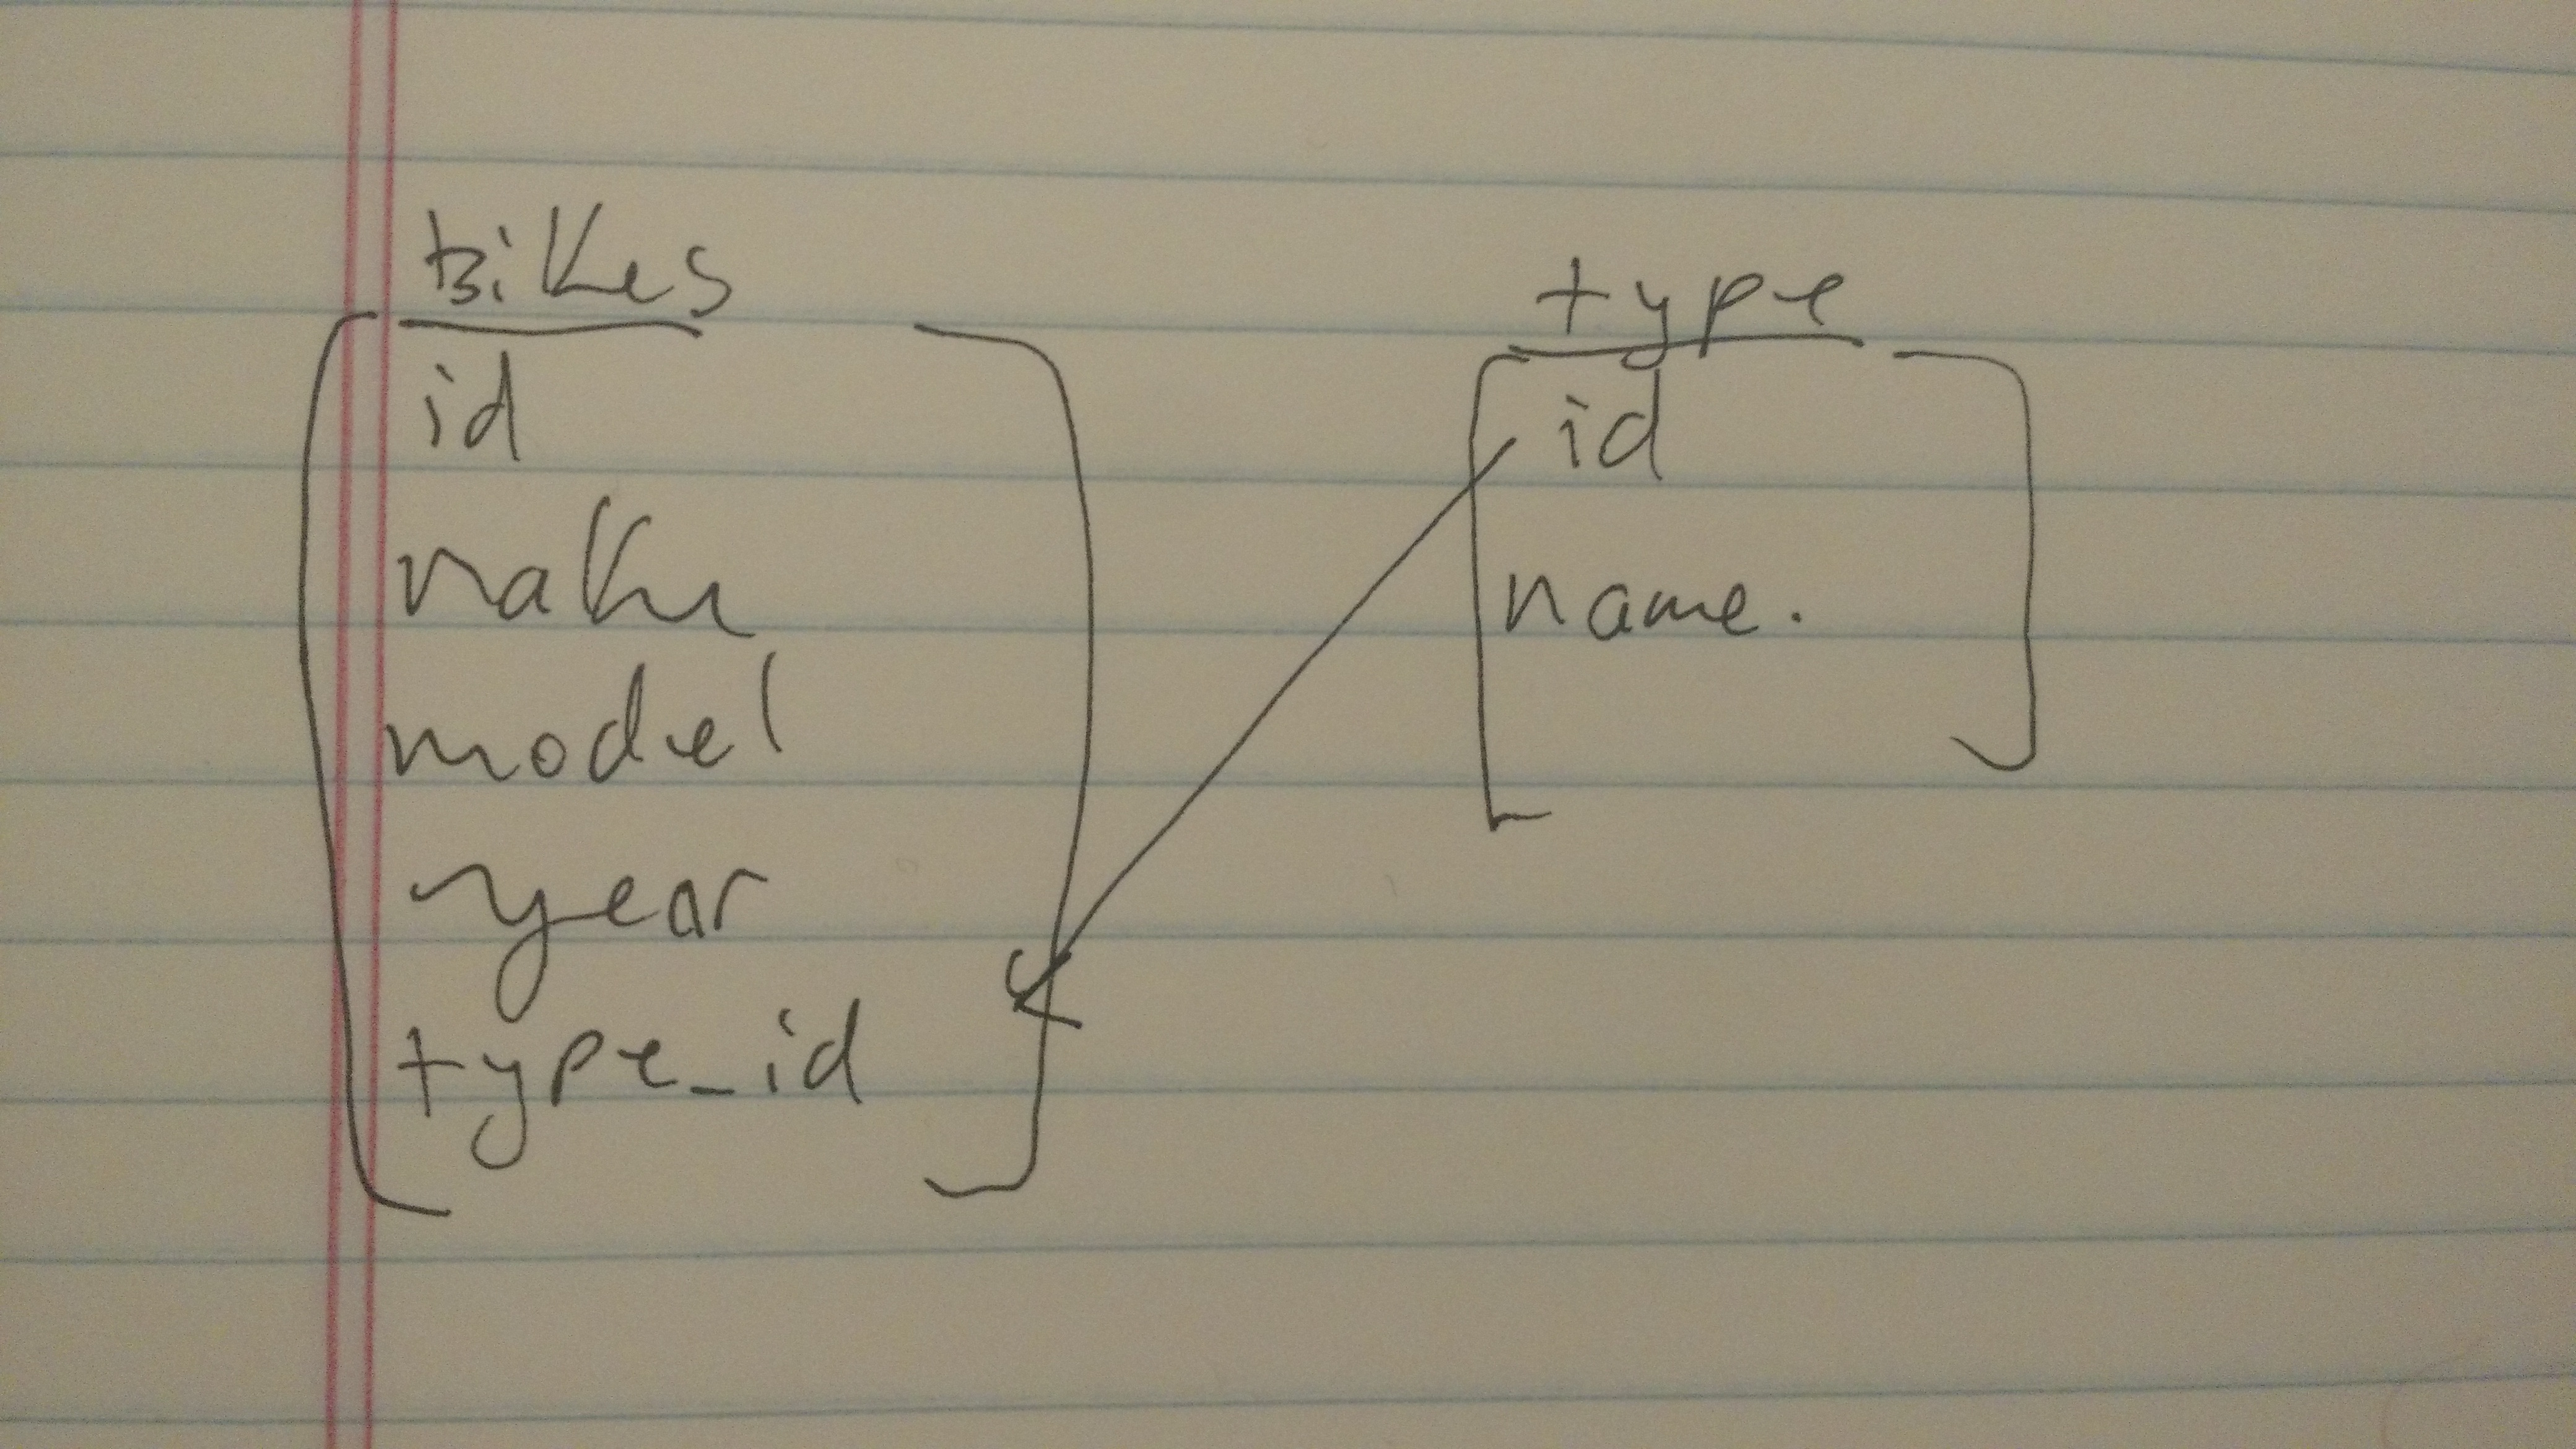 Bikes
id
make
model
year
type_id
type
id
name.